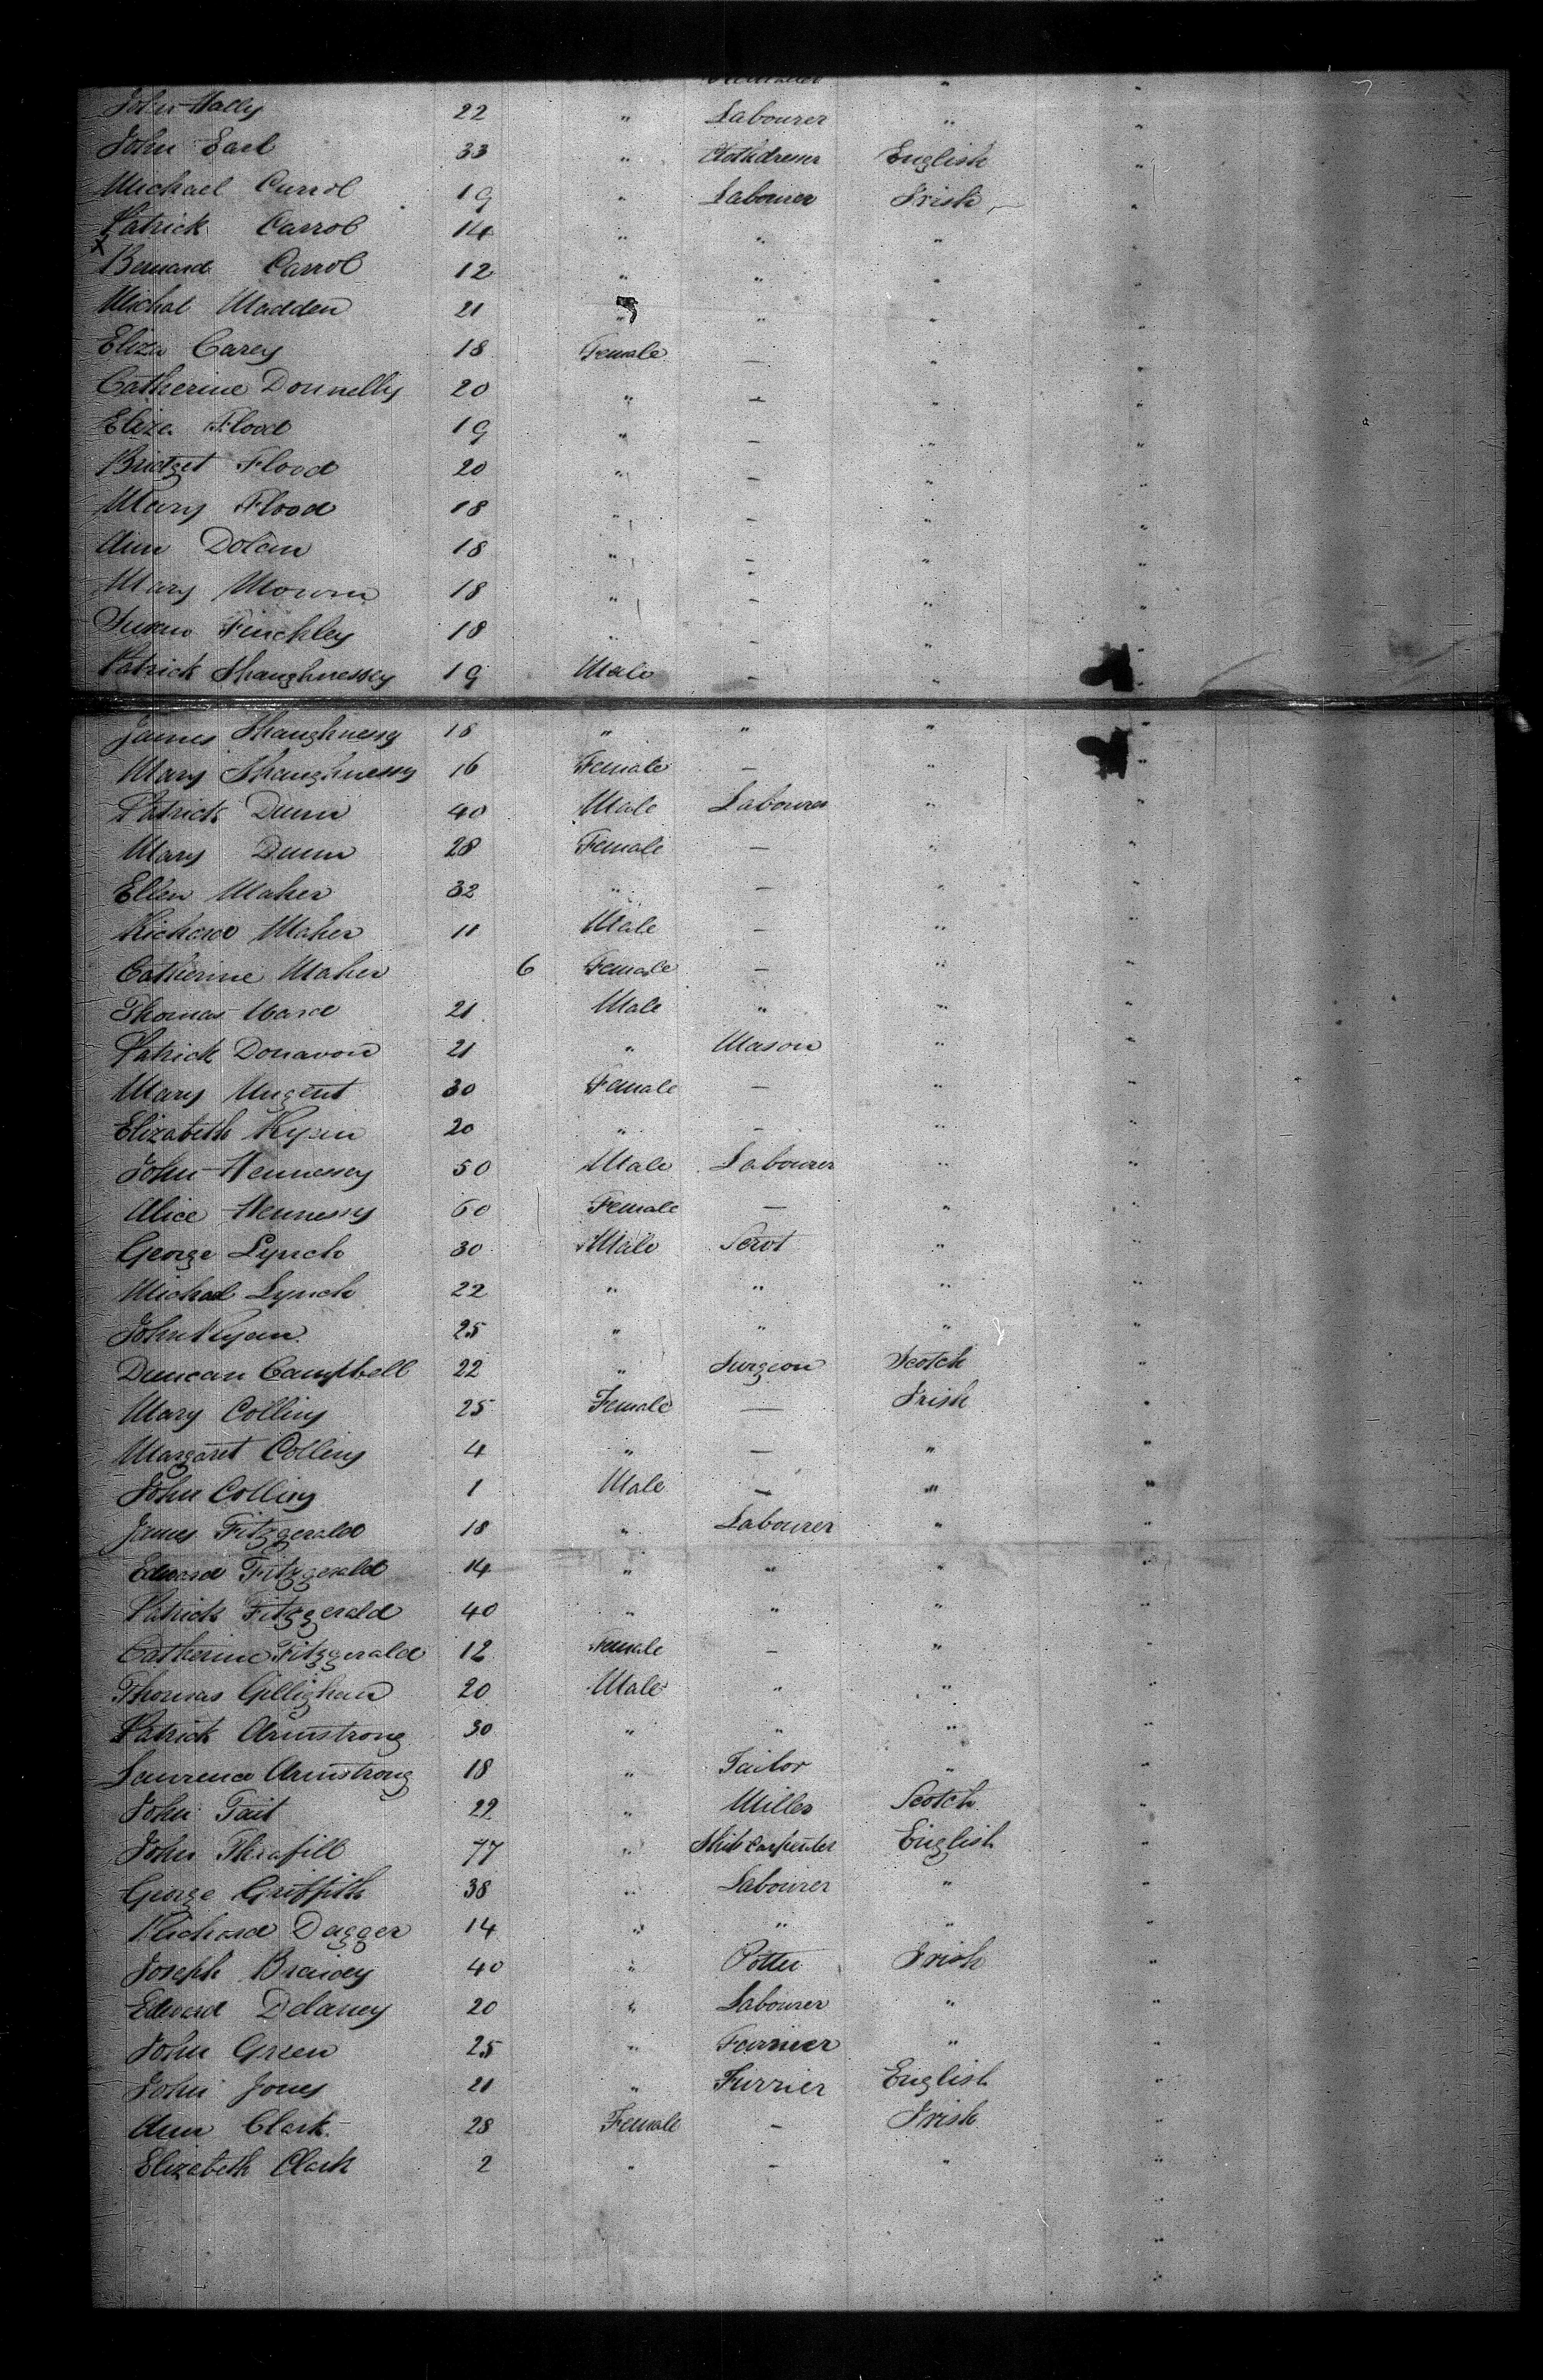 John Hally 22 " Labourer " "
John Earl 33 " Clothdresser English "
Michael Carrol 19 " Labourer Irish "
Patrick Carrol 14 " " " "
x Bernard Carrol 12 " " " "
Michal Madden 21 " " " "
Eliza Carey 18 Female — " "
Catherine Donnelly 20 " — " "
Eliza Flood 19 " — " "
Bridget Flood 20 " — " "
Mary Flood 18 " — " "
Ann Dolan 18 " — " "
Mary 18 " — " "
Susan Finchley 18 " — " "
Patrick Shaughnessey 19 Male — " "
James Shaughnessy 18 " " " "
Mary Shaughnessy 16 Female — " "
Patrick Dunn 40 Male Labourer " "
Mary Dunn 28 Female — " "
Ellen Maher 32 " — " "
Richard Maher 11 Male — " "
Catherine Maher 6 Female — " "
Thomas Ward 21 Male " " "
Patrick Donavon 21 " Mason " "
Mary Nugent 30 Female — " "
Elizabeth Ryan 20 " — " "
John Hennessy 50 Male Labourer " "
Alice Hennessy 60 Female — " "
George Lynch 30 Male Servt " "
Michael Lynch 22 " " " "
John Ryan 25 " " " "
Duncan Campbell 22 " Surgeon Scotch "
Mary Collins 25 Female — Irish "
Margaret Collins 4 " — " "
John Collins 1 Male — " "
James Fitzgerald 18 " Labourer " "
Edward Fitzgerald 14 " " " "
Patrick Fitzgerald 40 " " " "
Catherine Fitzgerald 12 Female — " "
Thomas Gillighan 20 Male " " "
Patrick Armstrong 30 " " " "
Laurence Armstrong 18 " Tailor " "
John Tait 22 " Miller Scotch "
John 77 " Ship Carpenter English "
George Griffith 38 " Labourer " "
Richard Dagger 14 " " " "
Joseph 40 " Potter Irish "
Edward Delaney 20 " Labourer " "
John Green 25 " Farrier " "
John Jones 21 " Furrier English "
Ann Clark 28 Female — Irish "
Elizabeth Clark 2 " — " "